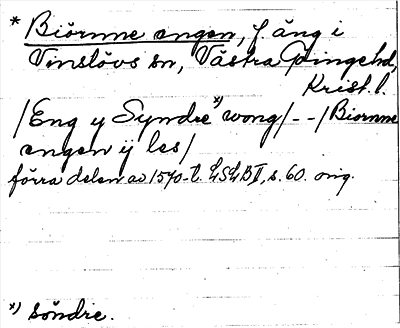 * Biörnme engen, f äng i
Vinslövs sn, Västra Göinge hd,
Krist. l.
/Eng y Syndre*) wong/ - - / Biornme
engen ij les/
förra delen av 1570-t. LSLB II, s. 60. orig.
*) söndre.